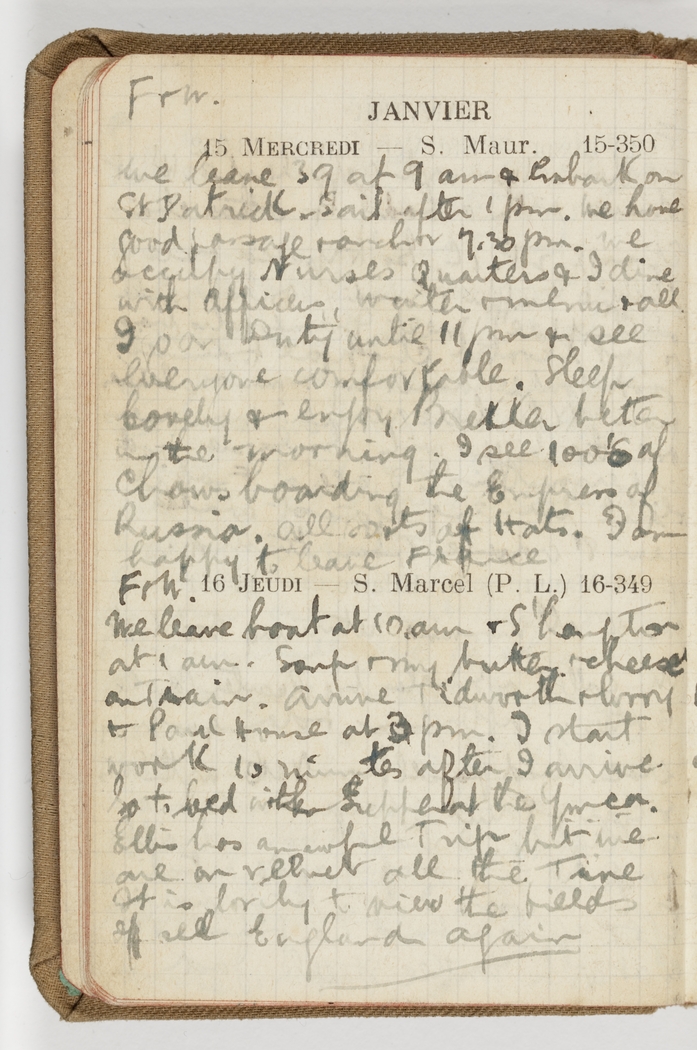 F & W.
JANVIER
15 MERCREDI — S. Maur. 15-350
We leave 39 at 9 am & Embark on
St Patrick. Sail after 1 pm. We have
good passage & anchor 7.30 pm. We
occupy Nurses Quarters & I dine
with Officers, waiter & menu & all
I Duty until 11 pm & see
everyone comfortable. Sleep
lovely & enjoy better
in the morning. I see 100's of
Chows boarding the Empress of
Russia. all sorts of Hats. I am
happy to leave France
F & W. 16 JEUDI — S. Marcel (P. L.) 16-349
We leave boat at 10 am & S'hampton
at 1 am. Soup & butter & cheese
on Train. arrive Tidworth & lorry
to House at 3 pm. I start
work 10 minutes after I arrive
to bed after Supper at the ymca.
Ellis has an awful Trip but we
are on velvet all the Time
It is lovely to view the fields
& see England again